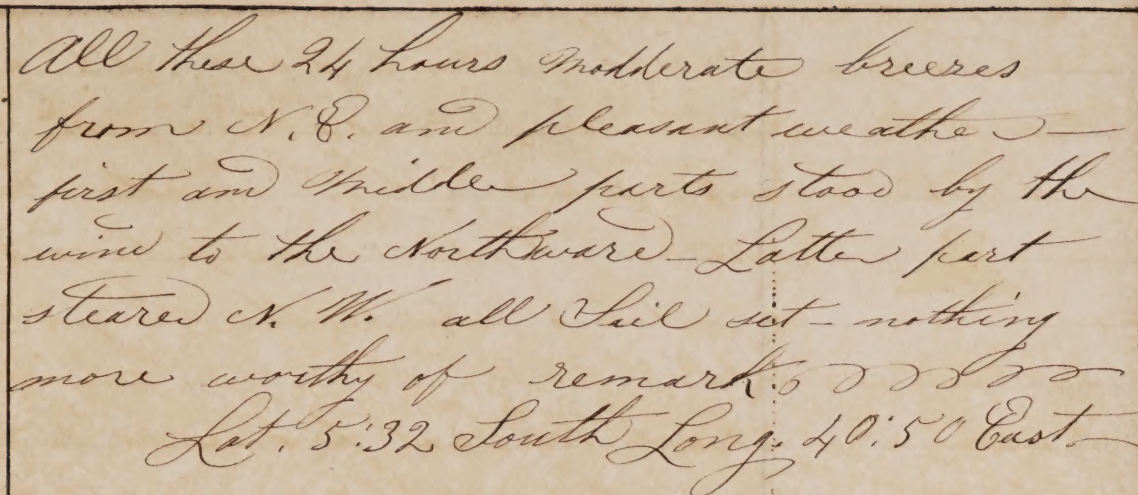 All these 24 hours modderate breezes
from N.E. and pleasant weather —
first and middle parts stood by the
wind to the Northward — Latter part
steared N.W. all Sail set — nothing
more worthy of remark
Lat. 5:32 South Long. 40:50 East. —